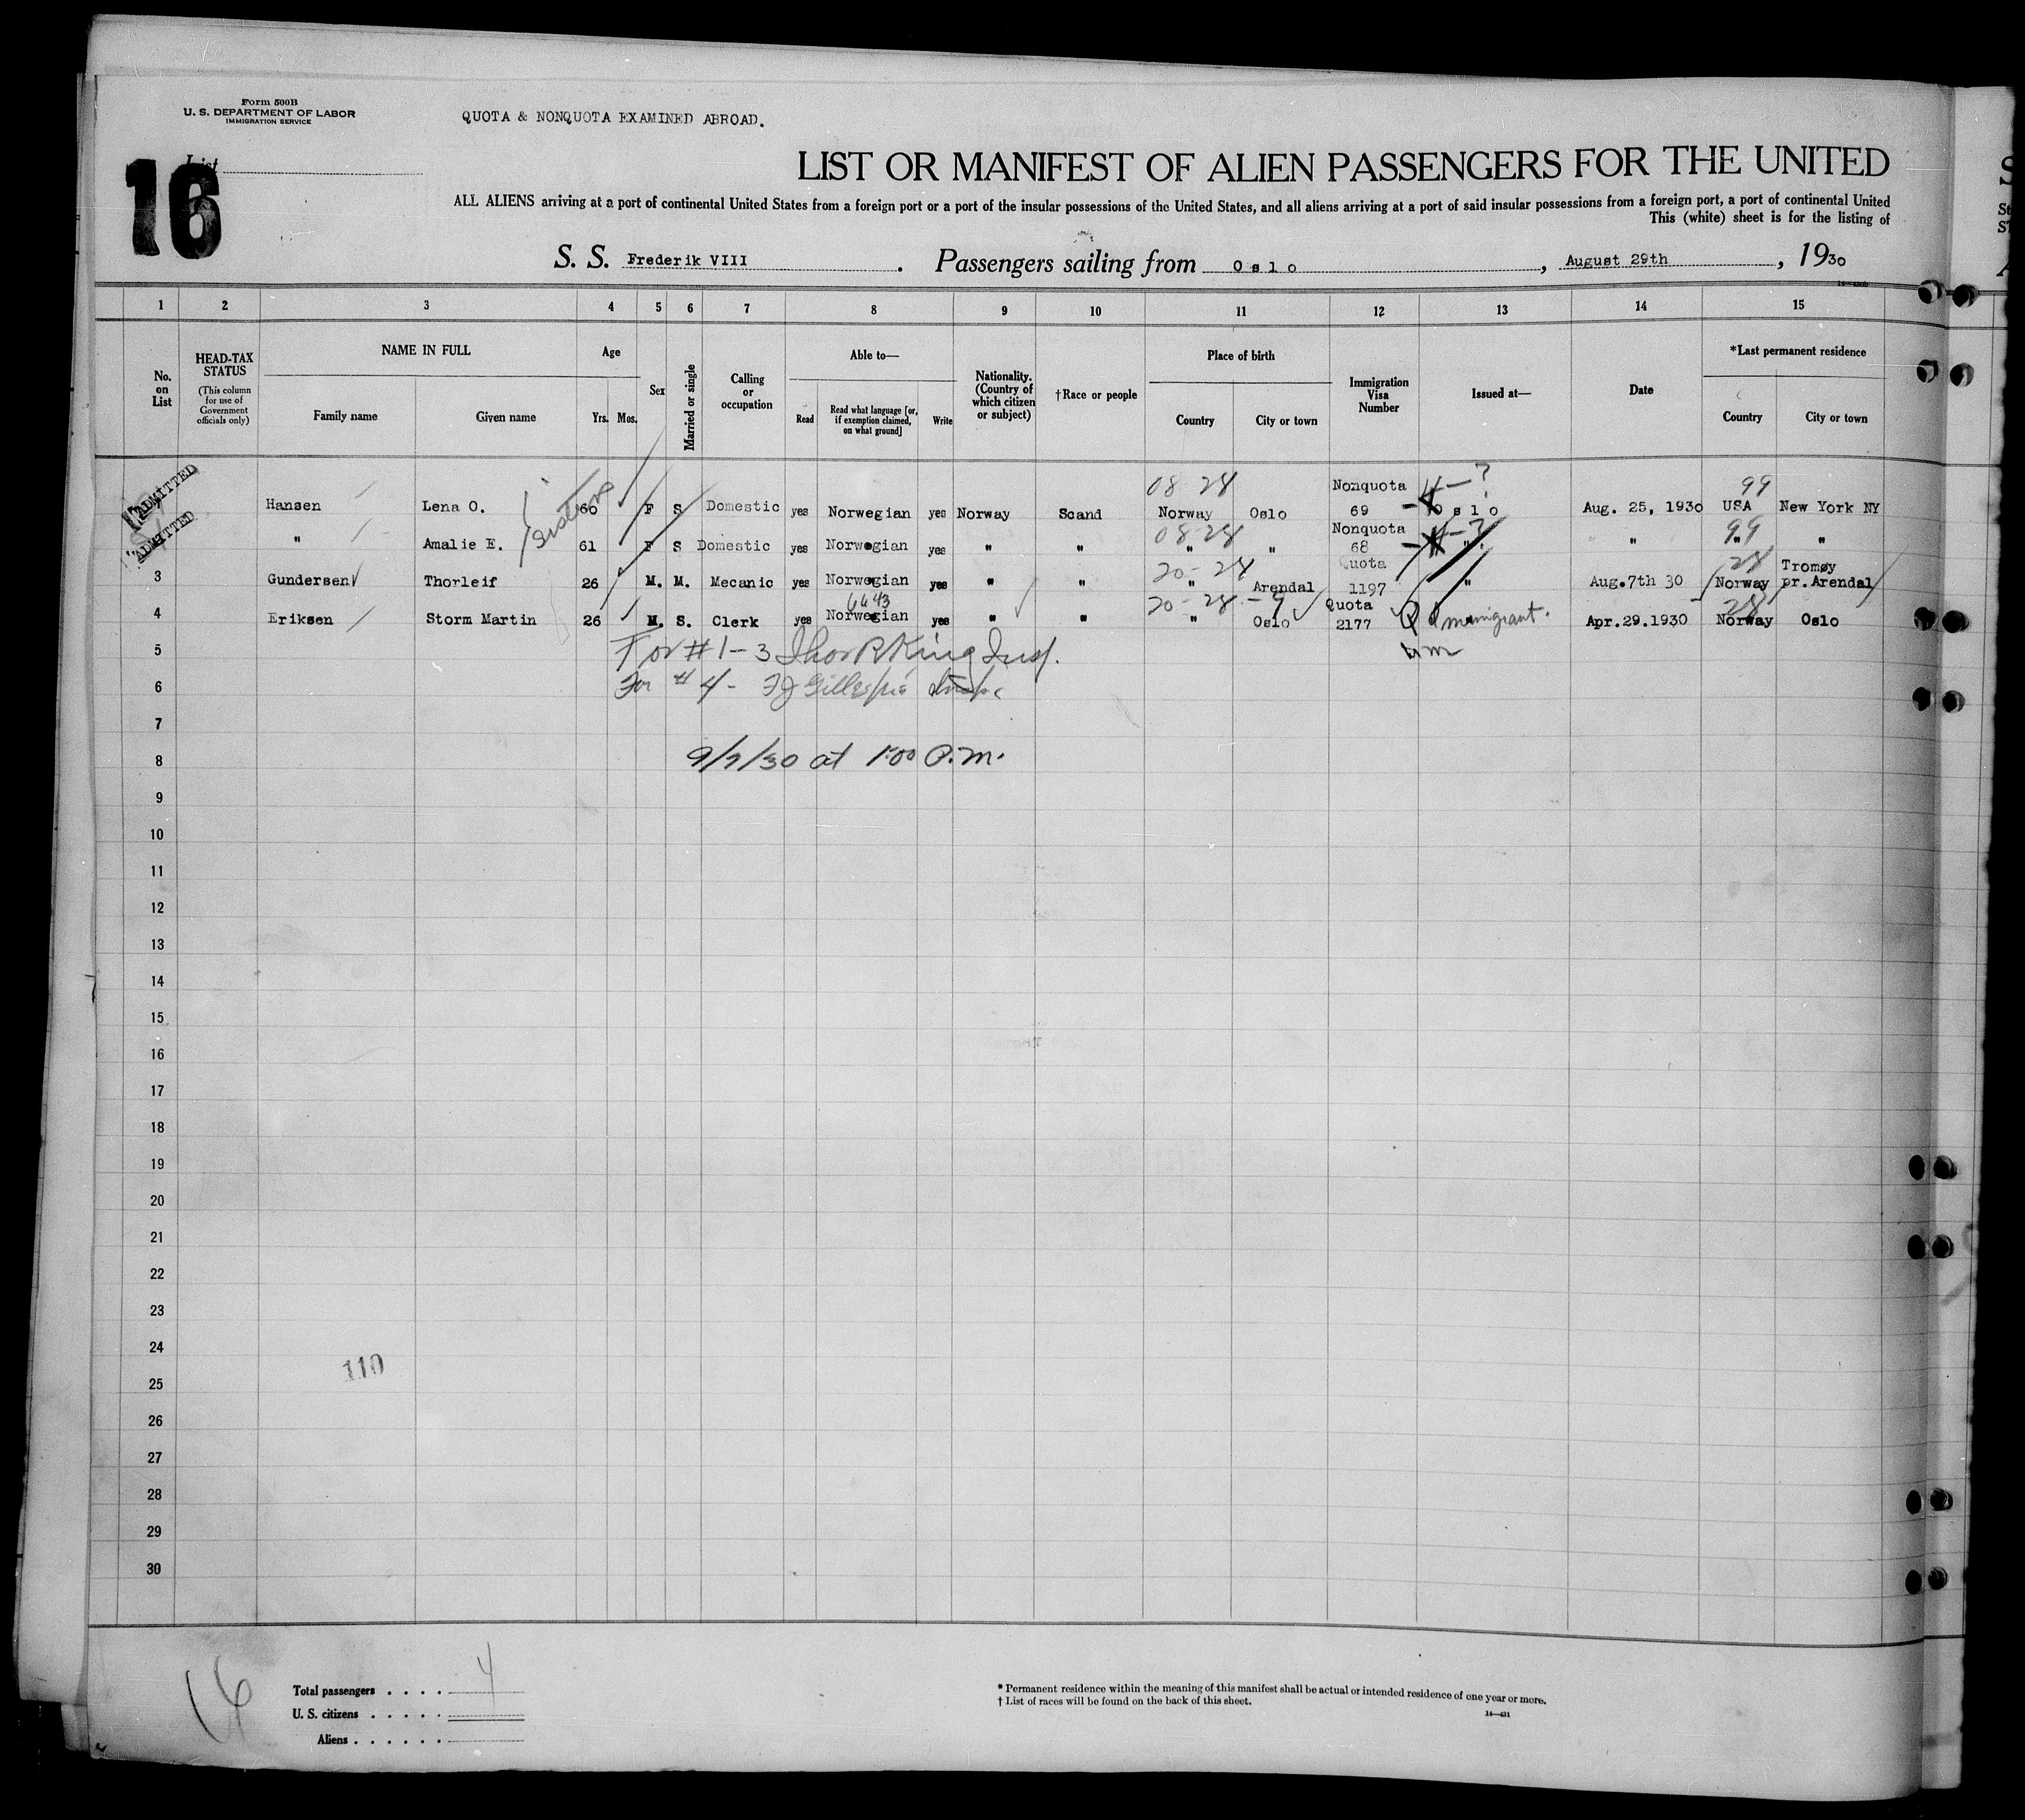 Form 500B
U. S. DEPARTMENT OF LABOR
IMMIGRATION SERVICE
QUOTA & NONQUOTA EXAMINED ABROAD.
List
16
LIST OR MANIFEST OF ALIEN PASSENGERS FOR THE UNITED
ALL ALIENS arriving at a port of continental United States from a foreign port or a port of the insular possessions of the United States, and all aliens arriving at a port of said insular possessions from a foreign port, a port of continental United
This (white) sheet is for the listing of
S. S. Frederik VIII . Passengers sailing from Oslo , August 29th , 1930
1 2 3 4 5 6 7 8 9 10 11 12 13 14 15
No. on List
HEAD-TAX STATUS
(This column for use of Government officials only)
NAME IN FULL
Family name Given name
Age
Yrs. Mos.
Sex
Married or single
Calling or occupation
Able to—
Read
Read what language [or, if exemption claimed, on what ground]
Write
Nationality. (Country of which citizen or subject)
†Race or people
Place of birth
Country City or town
Immigration Visa Number
Issued at—
Date
*Last permanent residence
Country City or town
08 28 Nonquota 4-? 99
ADMITTED Hansen Lena O. 60 F S Domestic yes Norwegian yes Norway Scand Norway Oslo 69 Oslo Aug. 25, 1930 USA New York NY
08-28 Nonquota 99
ADMITTED " Amalie E. 61 F S Domestic yes Norwegian yes " " " " 68 " " " "
20-28 Quota 28 Tromøy
3 Gundersen Thorleif 26 M. M. Mecanic yes Norwegian yes " " " Arendal 1197 " Aug.7th 30 Norway pr. Arendal
6643 20-28-9 Quota 28
4 Eriksen Storm Martin 26 M. S. Clerk yes Norwegian yes " " " Oslo 2177 Q Immigrant. Apr.29.1930 Norway Oslo
5 For #1-3 Thor R King Insp.
6 For #4- FJ Gillespie Inspc
7
8 9/9/30 at 1:00 P.M.
9
10
11
12
13
14
15
16
17
18
19
20
21
22
23
24
110
25
26
27
28
29
30
16
Total passengers . . . . 4
U. S. citizens . . . . .
Aliens . . . . . .
* Permanent residence within the meaning of this manifest shall be actual or intended residence of one year or more.
† List of races will be found on the back of this sheet.
14—431